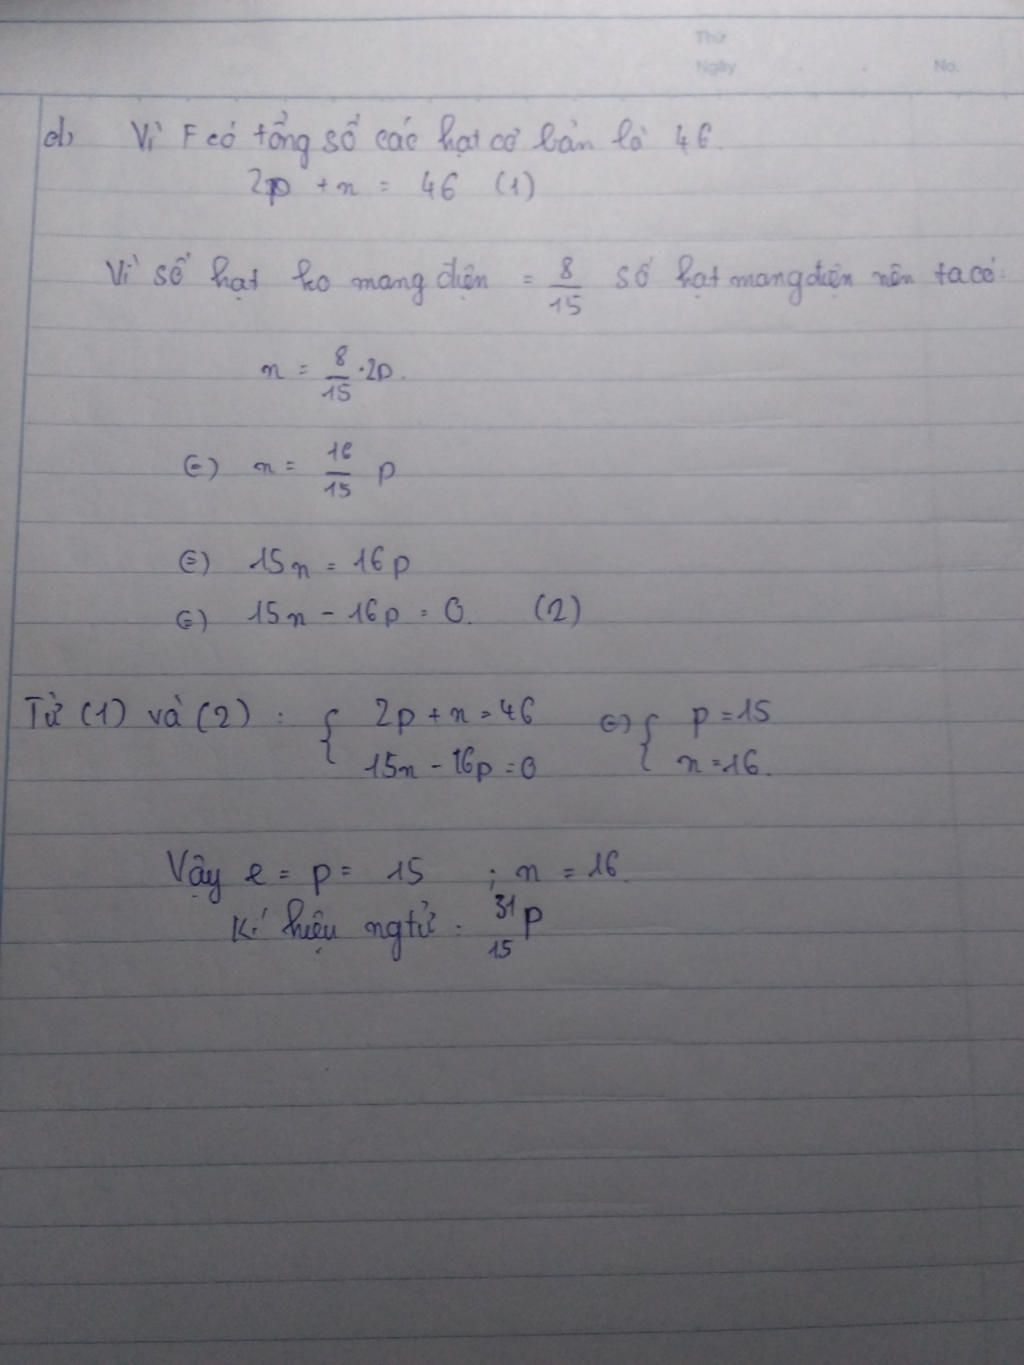 Thứ
Ngày No.
d) Vì F có tổng số các hạt cơ bản là 46.
2p + n = 46 (1)
Vì số hạt ko mang điện = 8/15 số hạt mang điện nên ta có:
n = 8/15 . 2p.
(=) n = 16/15 p
(=) 15n = 16p
(=) 15n - 16p = 0. (2)
Từ (1) và (2) : { 2p + n = 46 (=) { p = 15
15n - 16p = 0 n = 16.
Vậy e = p = 15 ; n = 16
Kí hiệu ngtử : ³¹₁₅P